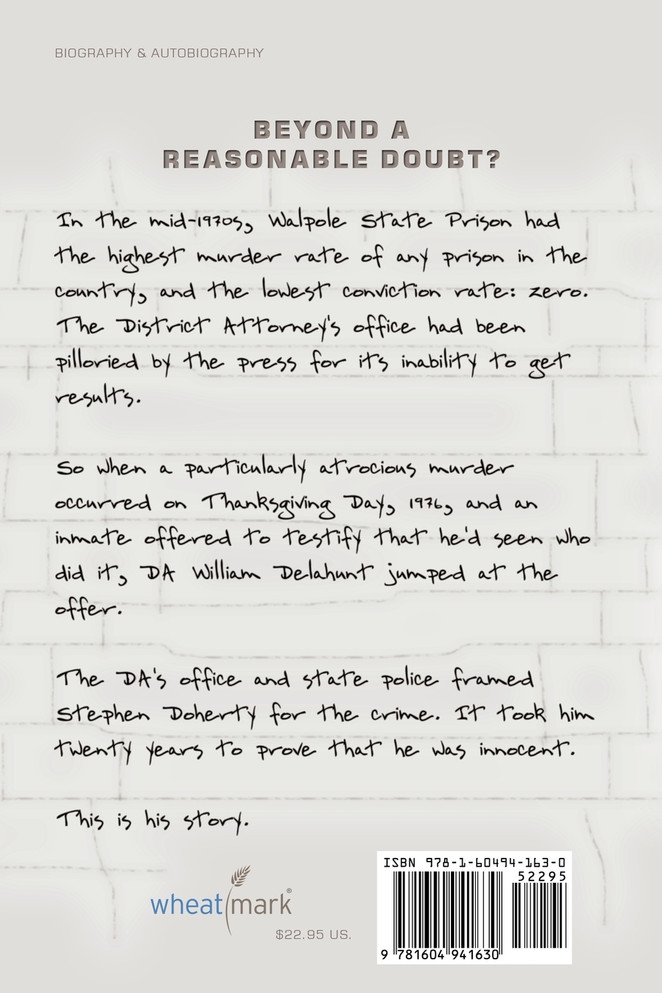 BIOGRAPHY & AUTOBIOGRAPHY
BEYOND A
REASONABLE DOUBT?
In the mid-1970s, Walpole State Prison had
the highest murder rate of any prison in the
country, and the lowest conviction rate: zero.
The District Attorney's office had been
pilloried by the press for its inability to get
results.
So when a particularly atrocious murder
occurred on Thanksgiving Day, 1976, and an
inmate offered to testify that he'd seen who
did it, DA William Delahunt jumped at the
offer.
The DA's office and state police framed
Stephen Doherty for the crime. It took him
twenty years to prove that he was innocent.
This is his story.
wheatmark®
$22.95 US.
ISBN 978-1-60494-163-0
52295
9 781604 941630